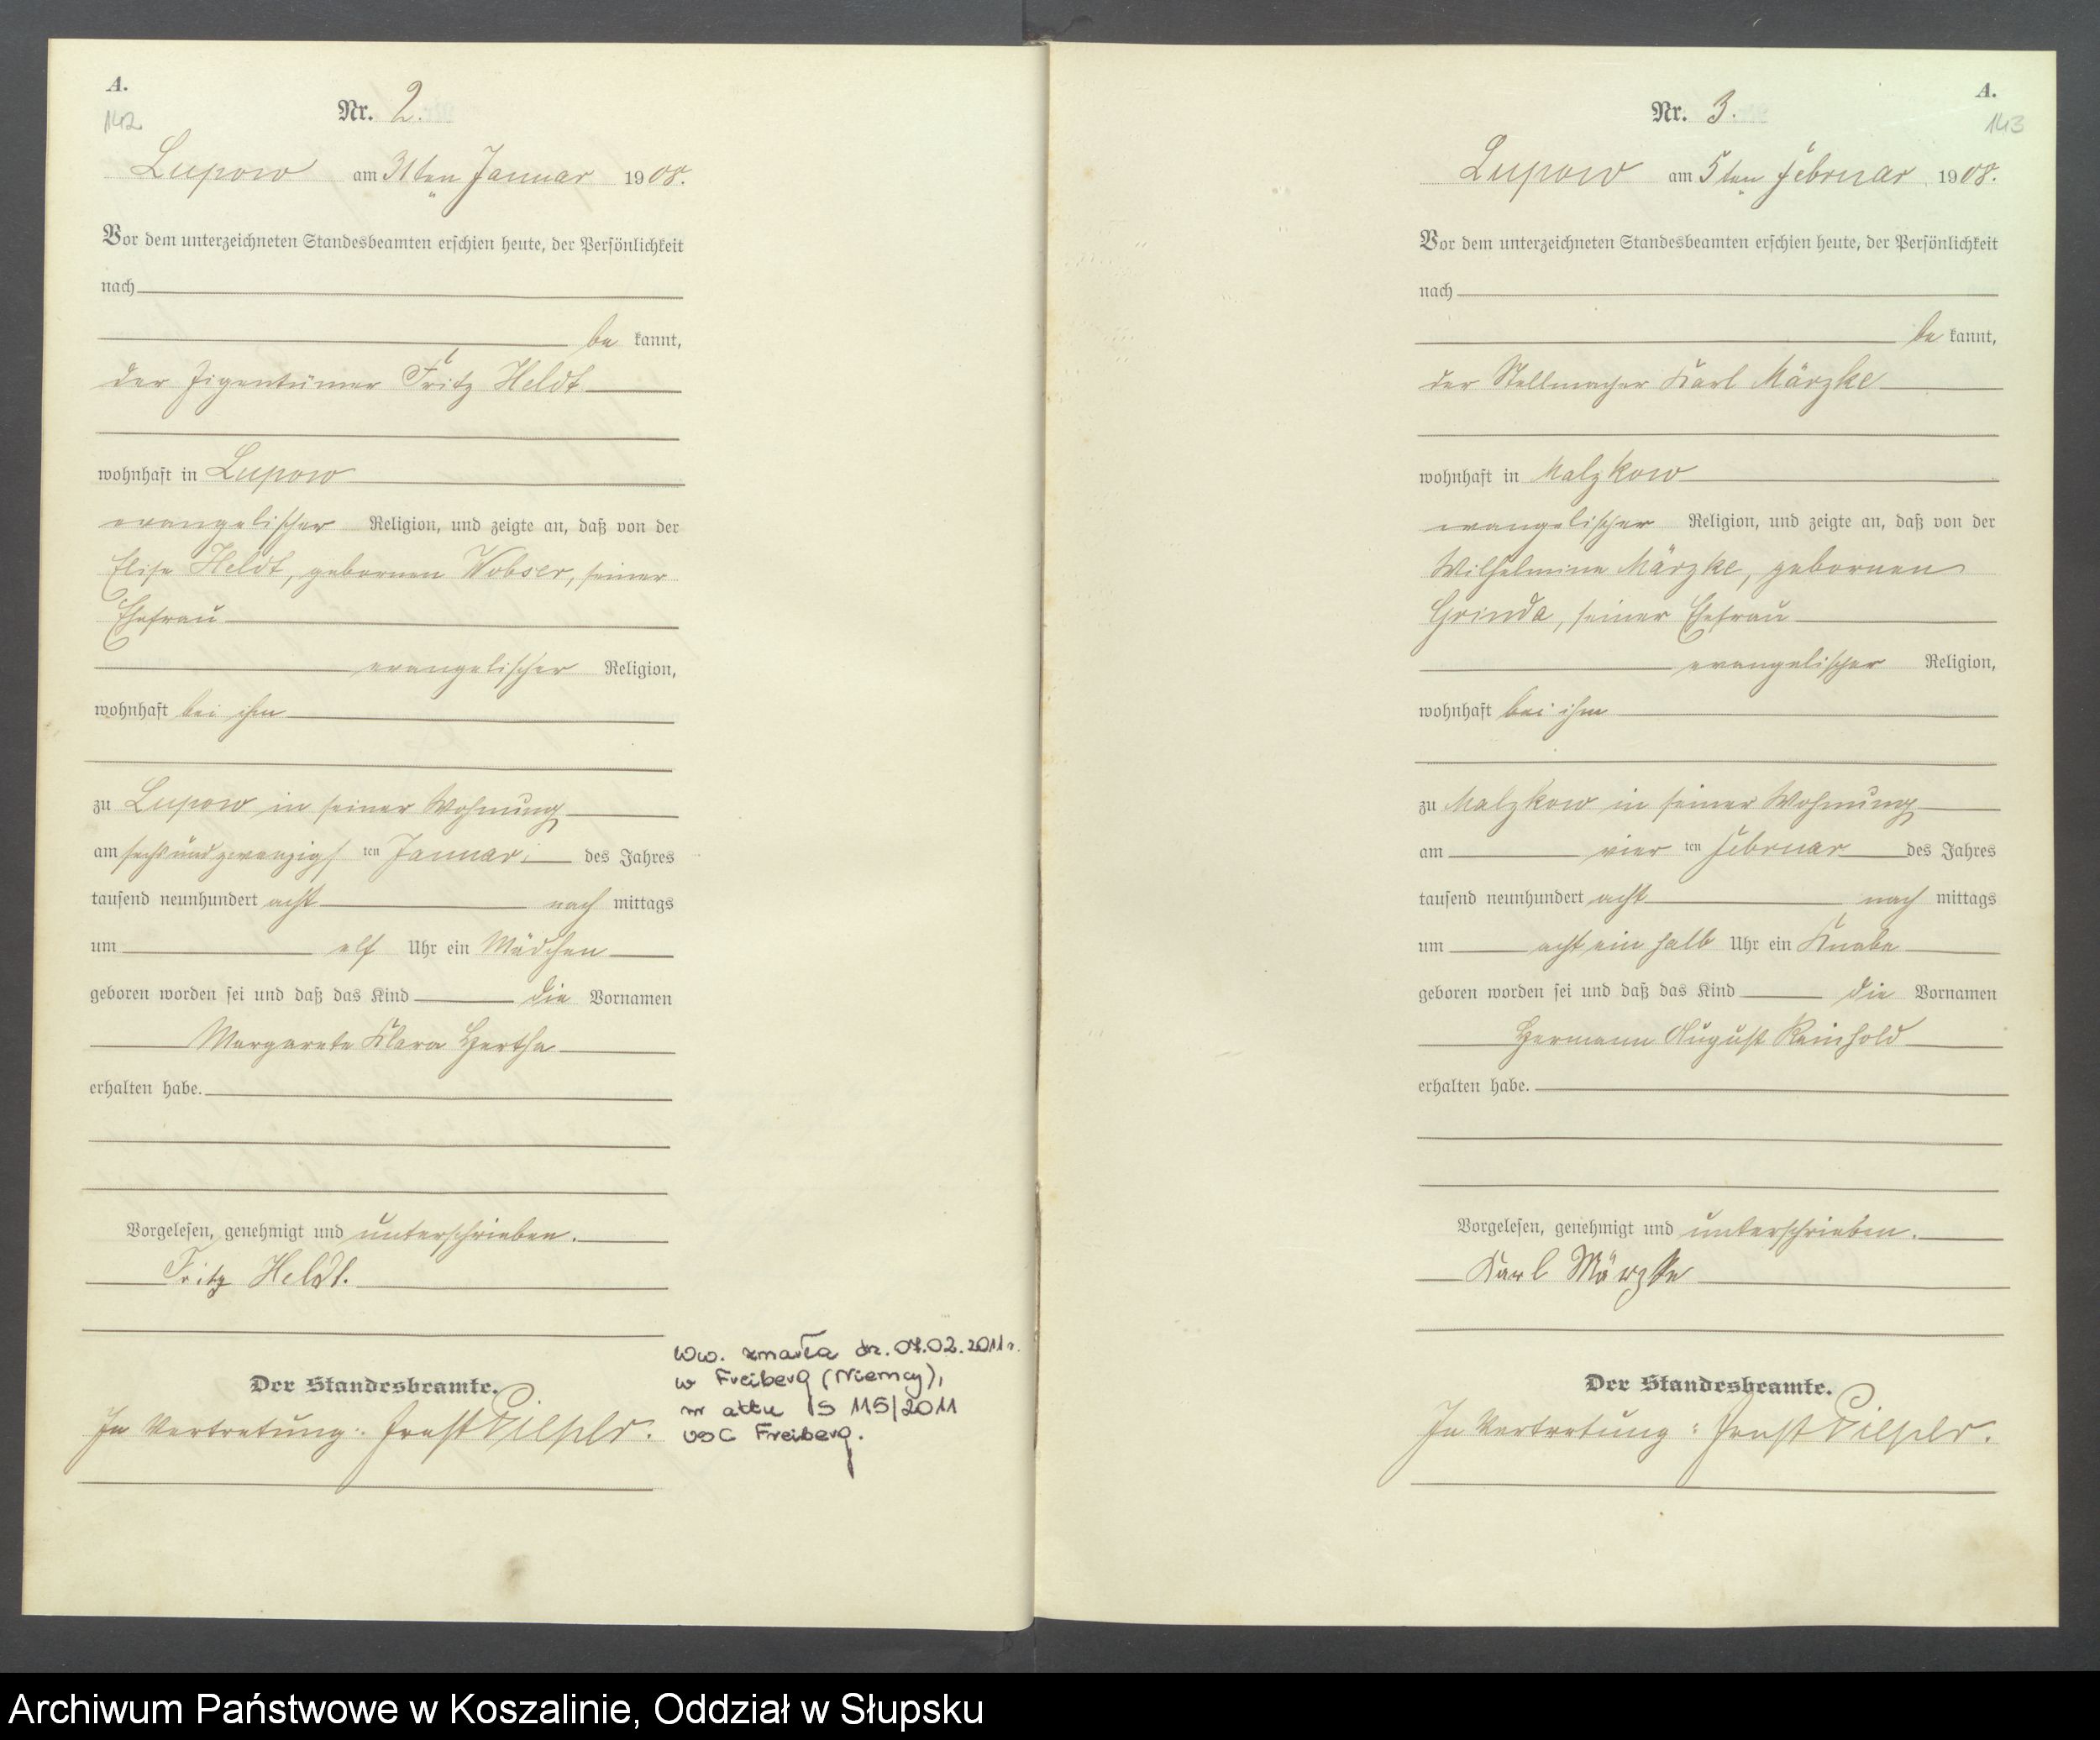 A.
142
Nr. 2.
Lupow am 31ten Januar 1908.
Vor dem unterzeichneten Standesbeamten erschien heute, der Persönlichkeit
nach
be kannt,
der Eigentümer Fritz Heldt
wohnhaft in Lupow
evangelischer Religion, und zeigte an, daß von der
Elise Heldt, gebornen Wobser, seiner
Ehefrau
evangelischer Religion,
wohnhaft bei ihm
zu Lupow in seiner Wohnung
am sechsundzwanzigsten Januar des Jahres
tausend neunhundert acht nach mittags
um elf Uhr ein Mädchen
geboren worden sei und daß das Kind die Vornamen
Margarete Klara Hertha
erhalten habe.
Vorgelesen, genehmigt und unterschrieben.
Fritz Heldt.
Der Standesbeamte.
In Vertretung: Ernst
ww. zmarła dn. 07.02.2011r.
w Freiberg (Niemcy),
nr aktu S 115/2011
USC Freiberg.
A.
143
Nr. 3.
Lupow am 5ten Februar 1908.
Vor dem unterzeichneten Standesbeamten erschien heute, der Persönlichkeit
nach
be kannt,
der Stellmacher Karl Märzke
wohnhaft in Malzkow
evangelischer Religion, und zeigte an, daß von der
Wilhelmine Märzke, gebornen
Grinda, seiner Ehefrau
evangelischer Religion,
wohnhaft bei ihm
zu Malzkow in seiner Wohnung
am vier ten Februar des Jahres
tausend neunhundert acht nach mittags
um acht ein halb Uhr ein Knabe
geboren worden sei und daß das Kind die Vornamen
Hermann August Reinhold
erhalten habe.
Vorgelesen, genehmigt und unterschrieben.
Karl Märzke
Der Standesbeamte.
In Vertretung: Ernst
Archiwum Państwowe w Koszalinie, Oddział w Słupsku